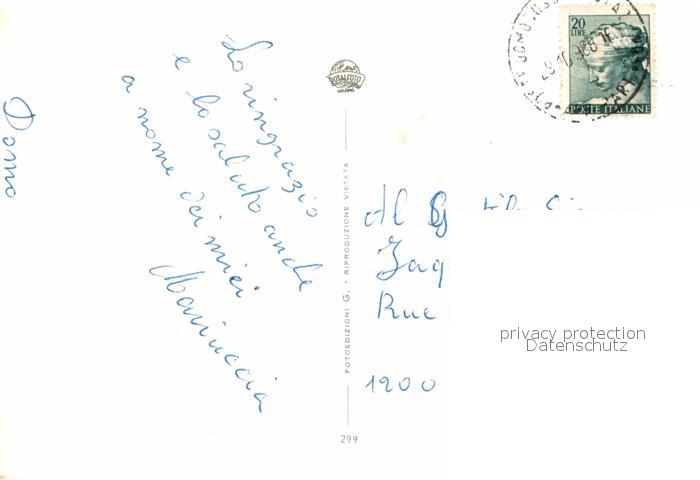 Domo
Lo ringrazio
e lo saluto anche
a nome dei miei
Mariuccia
ROTALFOTO
MILANO
FOTOEDIZIONI G. - RIPRODUZIONE VIETATA
299
20
LIRE
POSTE ITALIANE
Al
Jaq
Rue
1200
privacy protection
Datenschutz